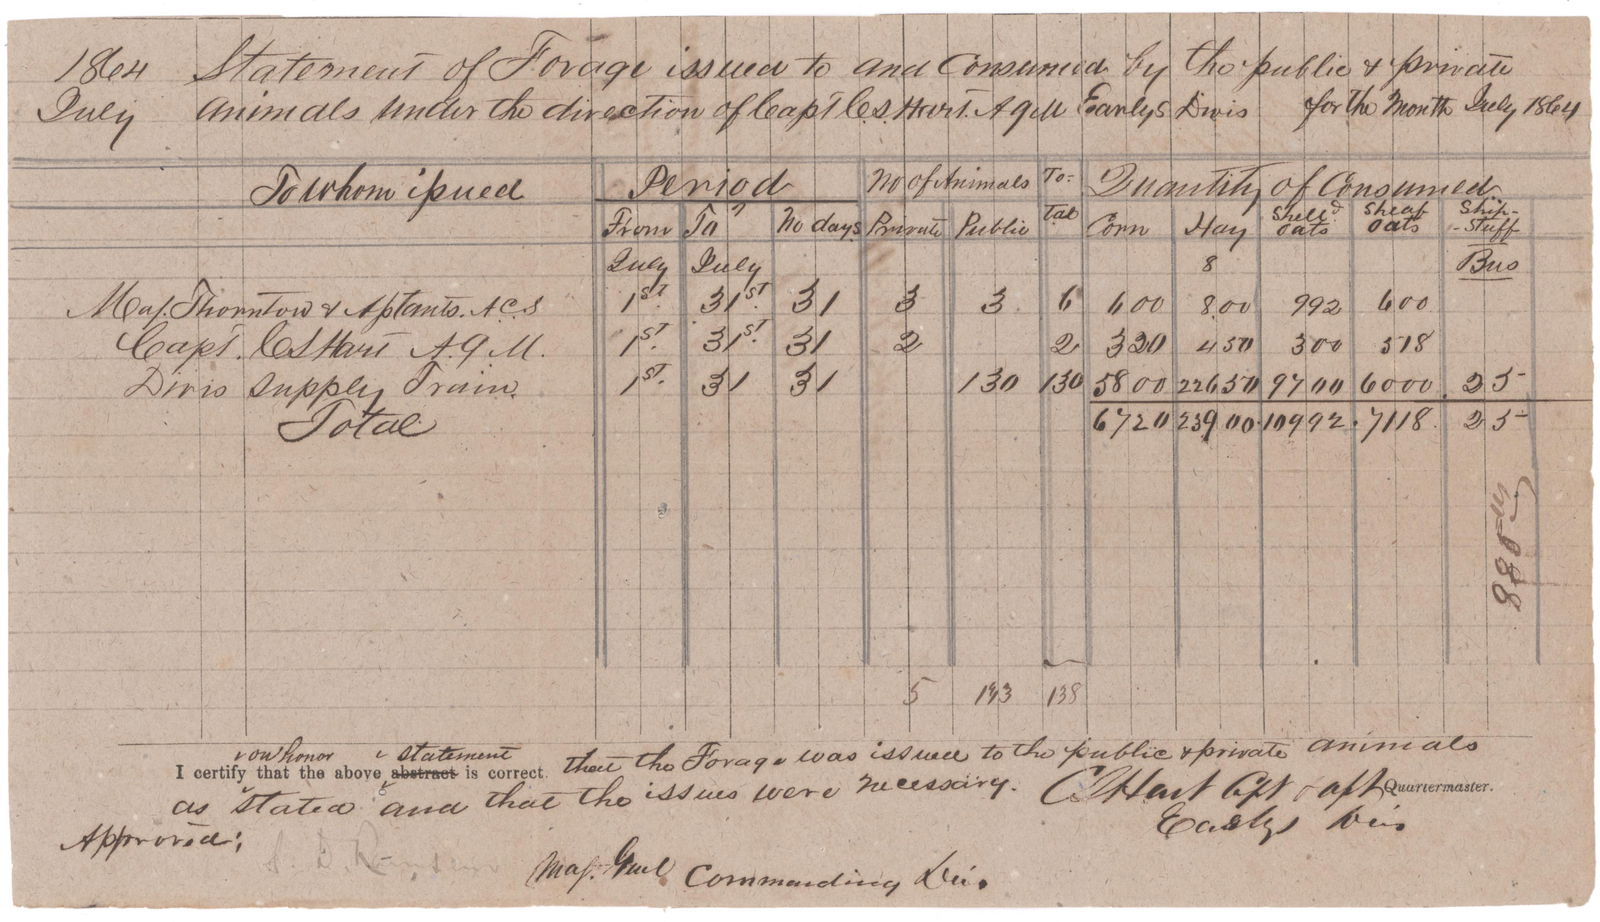 1864 Statement of Forage issued to and Consumed by the public & private
July animals under the direction of Capt C.S. Hart. A Q M Earlys Divis for the Month July 1864
To whom issued Period No of Animals To- Quantity of Consumed
From To No days Private Public tal Corn Hay Shelld oats Sheaf oats Ship-stuff
July July 8 Bus
Maj. Thornton & Asstants. A C S 1st. 31st. 31 3 3 6 600 800 992 600
Capt. C S Hart A. Q M. 1st. 31st. 31 2 2 320 450 300 518
Divis Supply Train. 1st. 31 31 130 130 5800 22650 9700 6000 25
Total 6720 23900 10992 7118 25
5 133 138
on honor statement
I certify that the above abstract is correct that the Forage was issued to the public & private animals
as stated and that the issues were necessary. C S Hart Cpt & asst Quartermaster.
Earlys Div
Approved:
Maj. Genl Commanding Div.